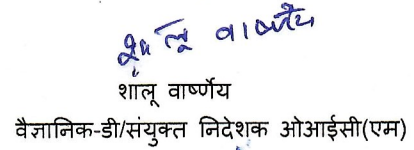 शालू वार्ष्णेय
शालू वार्ष्णेय
वैज्ञानिक-डी/संयुक्त निदेशक ओआईसी(एम)